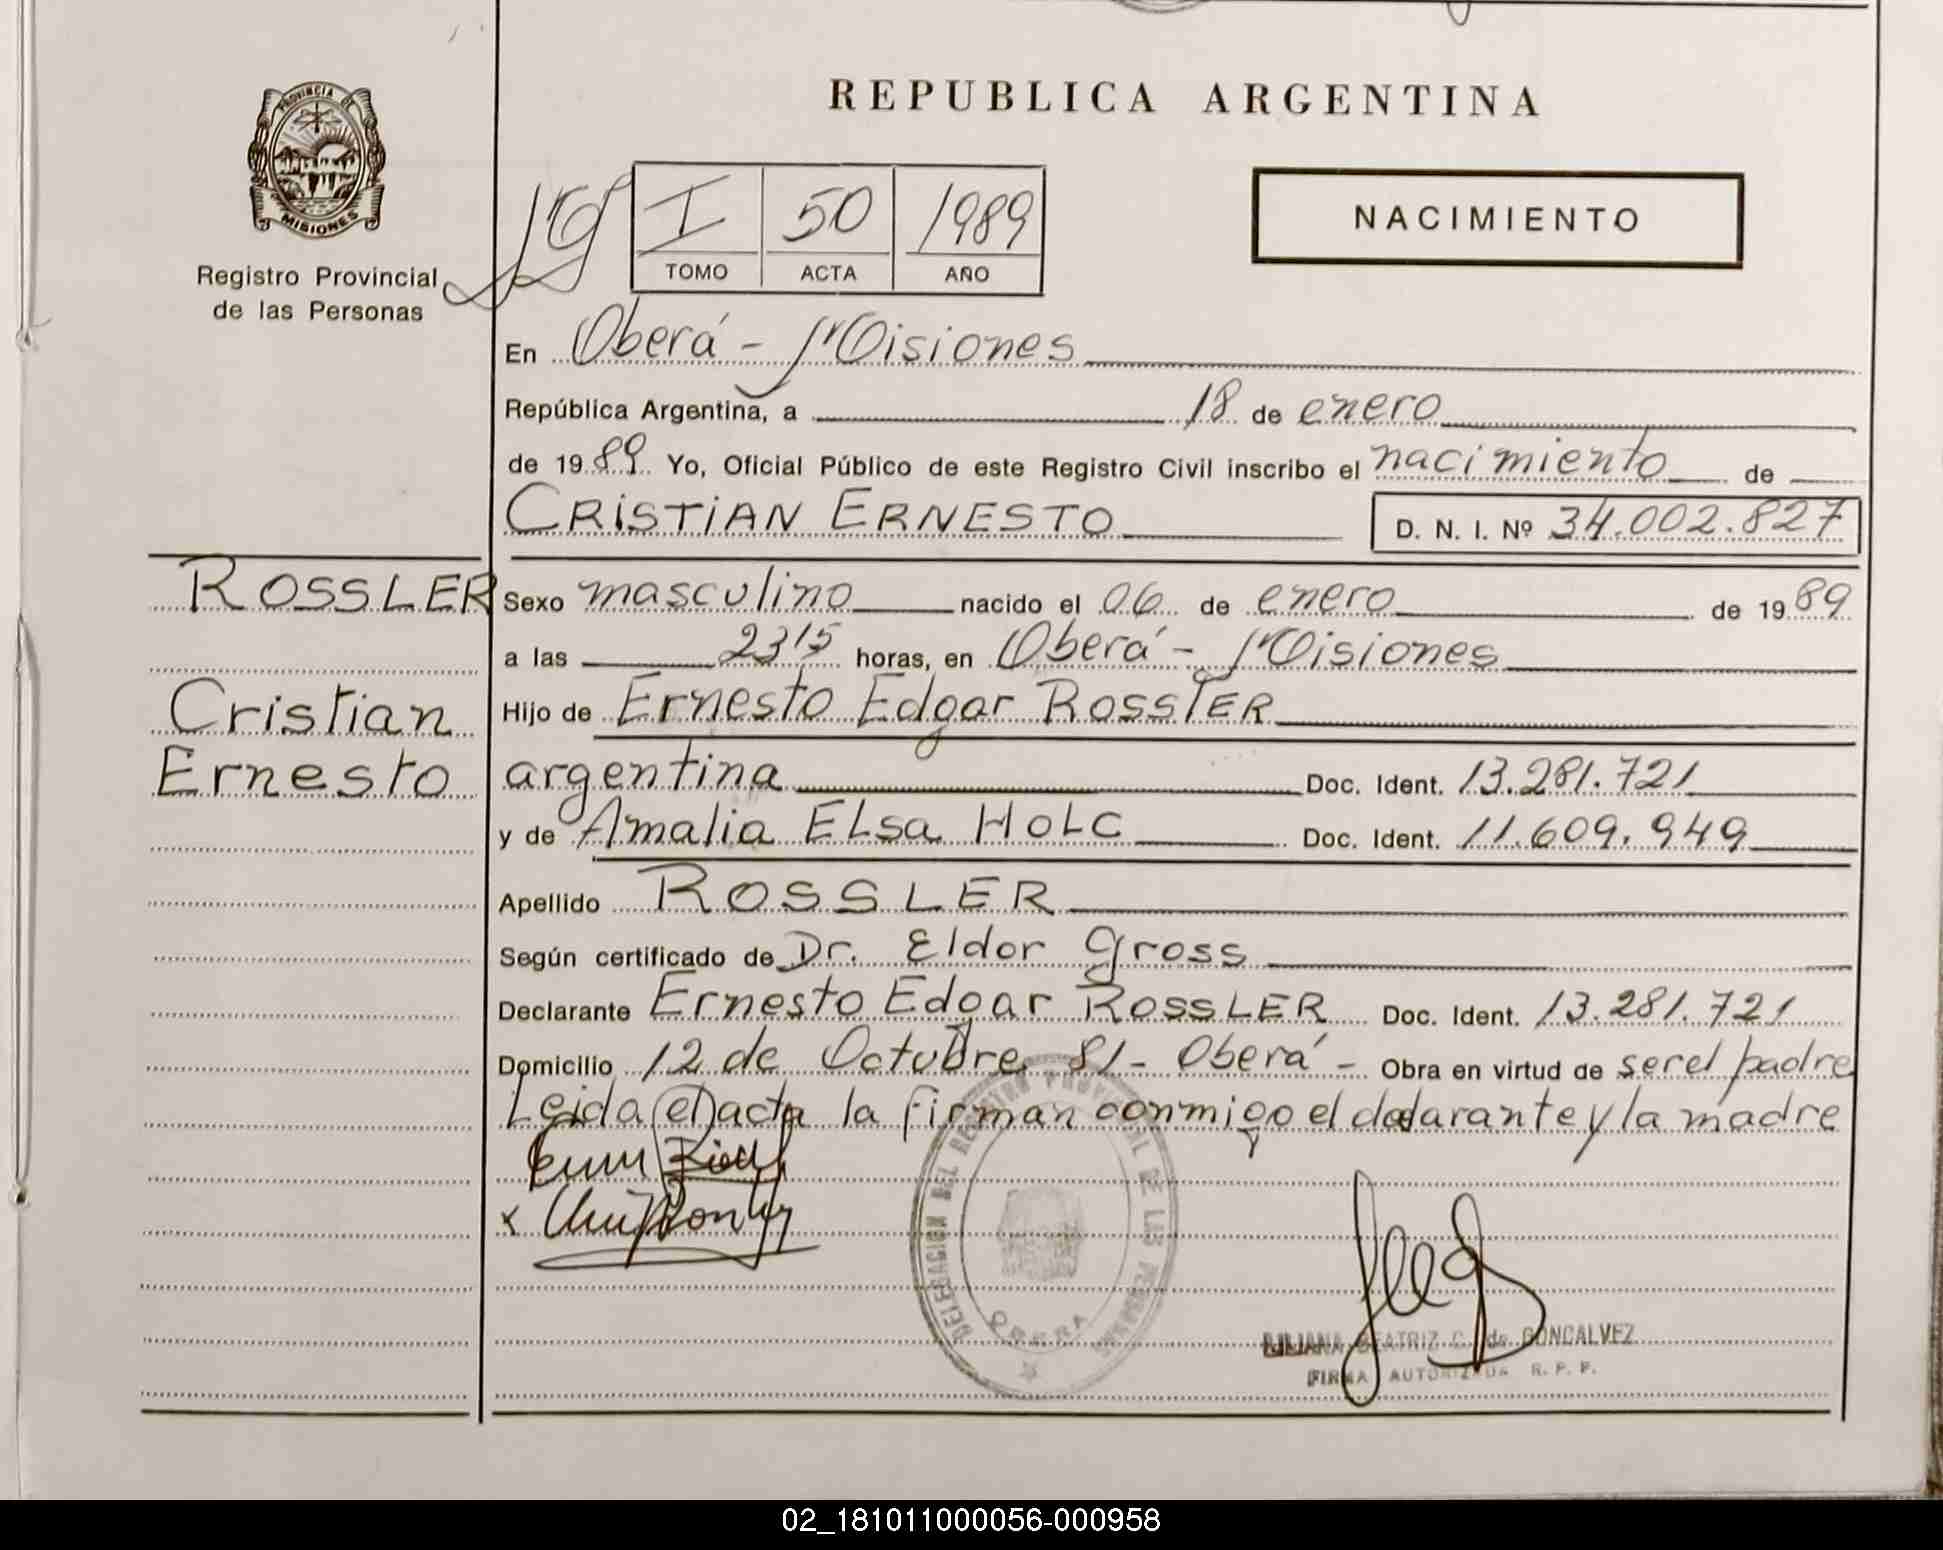 REPUBLICA ARGENTINA
PROVINCIA DE
MISIONES
Registro Provincial
de las Personas
I 50 1989
TOMO ACTA AÑO
NACIMIENTO
En Oberá - Misiones
República Argentina, a 18 de enero
de 1989 Yo, Oficial Público de este Registro Civil inscribo el nacimiento de
CRISTIAN ERNESTO D. N. I. Nº 34.002.827
ROSSLER
Cristian
Ernesto
Sexo masculino nacido el 06 de enero de 1989
a las 2315 horas, en Oberá - Misiones
Hijo de Ernesto Edgar ROSSLER
argentina Doc. Ident. 13.281.721
y de Amalia ELsa HOLC Doc. Ident. 11.609.949
Apellido ROSSLER
Según certificado de Dr. Eldor Gross
Declarante Ernesto Edgar ROSSLER Doc. Ident. 13.281.721
Domicilio 12 de Octubre 81 - Oberá - Obra en virtud de ser el padre
Leida el acta la firman conmigo el declarante y la madre
DELEGACION DEL REGISTRO PROVINCIAL DE LAS PERSONAS
OBERA
LILIANA BEATRIZ C. de GONCALVEZ
FIRMA AUTORIZADA R. P. P.
02_181011000056-000958